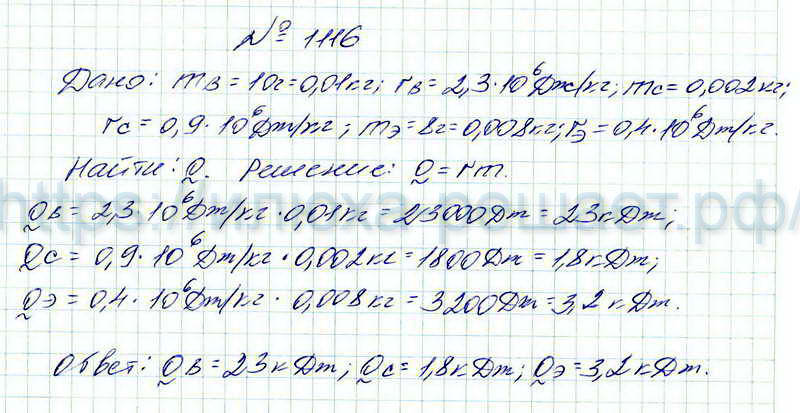 № 1116
Дано: mв = 10г = 0,01кг; rв = 2,3·10⁶Дж/кг; mс = 0,002кг;
rс = 0,9·10⁶Дж/кг; mэ = 8г = 0,008кг; rэ = 0,4·10⁶Дж/кг.
Найти: Q. Решение: Q = rm.
Qв = 2,3·10⁶Дж/кг·0,01кг = 23000Дж = 23кДж;
Qс = 0,9·10⁶Дж/кг·0,002кг = 1800Дж = 1,8кДж;
Qэ = 0,4·10⁶Дж/кг·0,008кг = 3200Дж = 3,2кДж.
Ответ: Qв = 23кДж; Qс = 1,8кДж; Qэ = 3,2кДж.